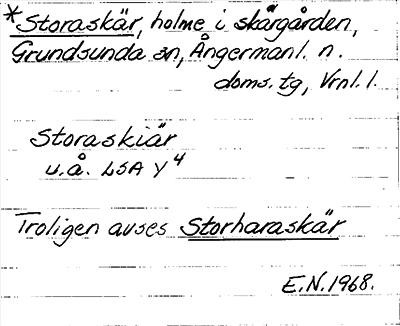 *Storaskär, holme i skärgården,
Grundsunda sn, Ångermanl. n.
doms.tg, Vrnl. l.
Storaskiär
u.å. LSA Y4
Troligen avses Storharaskär
E.N. 1968.